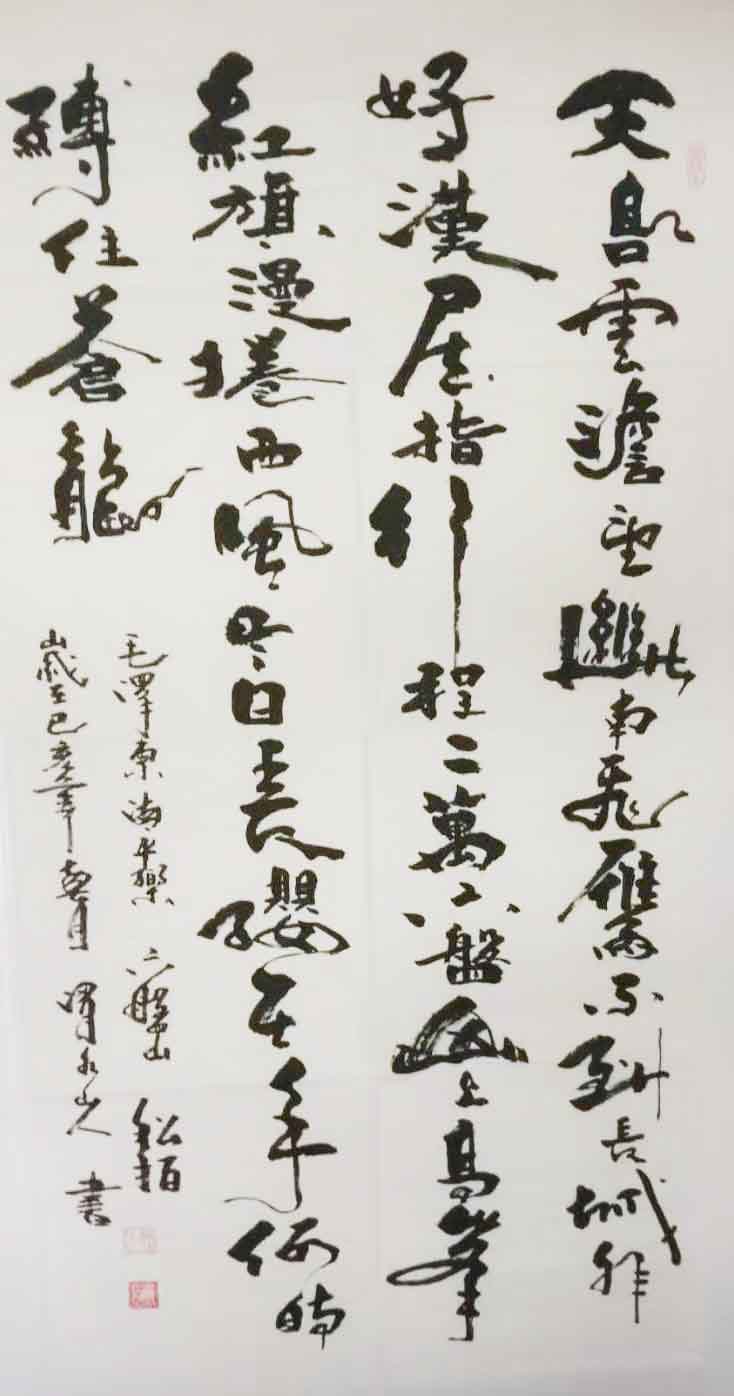 天高雲澹望斷南飛雁不到長城非
好漢屈指行程二萬六盤山上高峯
紅旗漫捲西風今日長纓在手何時
縛住蒼龍
毛澤東清平樂 六盤山
歲在己亥年 月 渭水山人 書